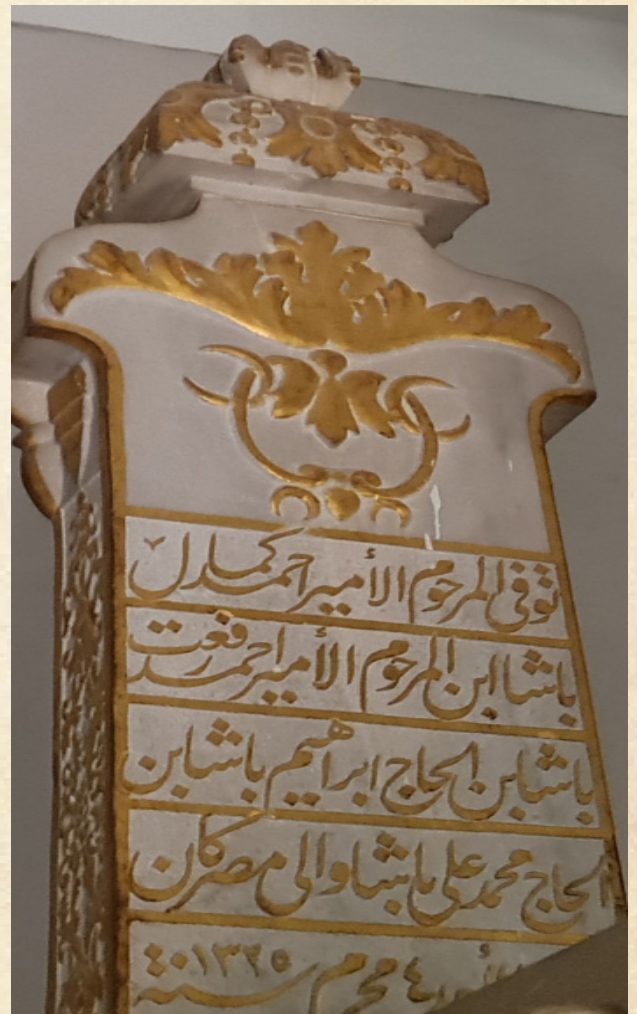 توفى المرحوم الأمير احمد كمال
باشا ابن المرحوم الأمير احمد رفعت
باشا بن الحاج ابراهيم باشا بن
الحاج محمد على باشا والى مصر كان
٤ محرم سنة ١٣٢٥